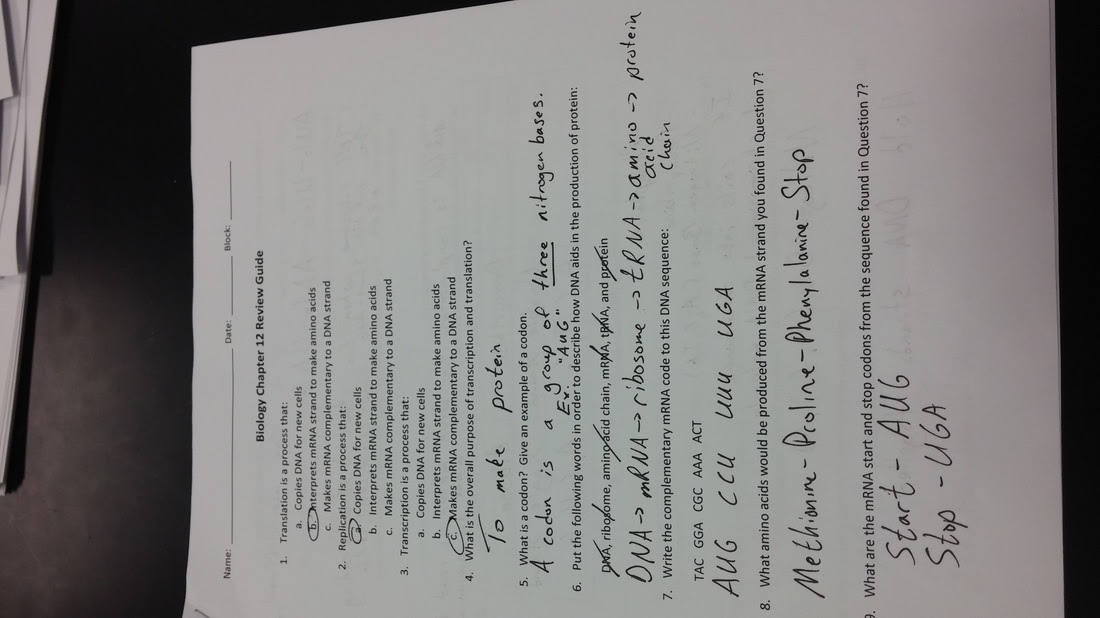 Name: ____________________ Date: __________ Block: ________
Biology Chapter 12 Review Guide
1. Translation is a process that:
a. Copies DNA for new cells
b. Interprets mRNA strand to make amino acids
c. Makes mRNA complementary to a DNA strand
2. Replication is a process that:
a. Copies DNA for new cells
b. Interprets mRNA strand to make amino acids
c. Makes mRNA complementary to a DNA strand
3. Transcription is a process that:
a. Copies DNA for new cells
b. Interprets mRNA strand to make amino acids
c. Makes mRNA complementary to a DNA strand
4. What is the overall purpose of transcription and translation?
To make protein
5. What is a codon? Give an example of a codon.
A codon is a group of three nitrogen bases.
Ex. "AUG"
6. Put the following words in order to describe how DNA aids in the production of protein:
DNA, ribosome, amino acid chain, mRNA, tRNA, and protein
DNA -> mRNA -> ribosome -> tRNA -> amino acid chain -> protein
7. Write the complementary mRNA code to this DNA sequence:
TAC GGA CGC AAA ACT
AUG CCU UUU UGA
8. What amino acids would be produced from the mRNA strand you found in Question 7?
Methionine - Proline - Phenylalanine - Stop
9. What are the mRNA start and stop codons from the sequence found in Question 7?
Start - AUG
Stop - UGA